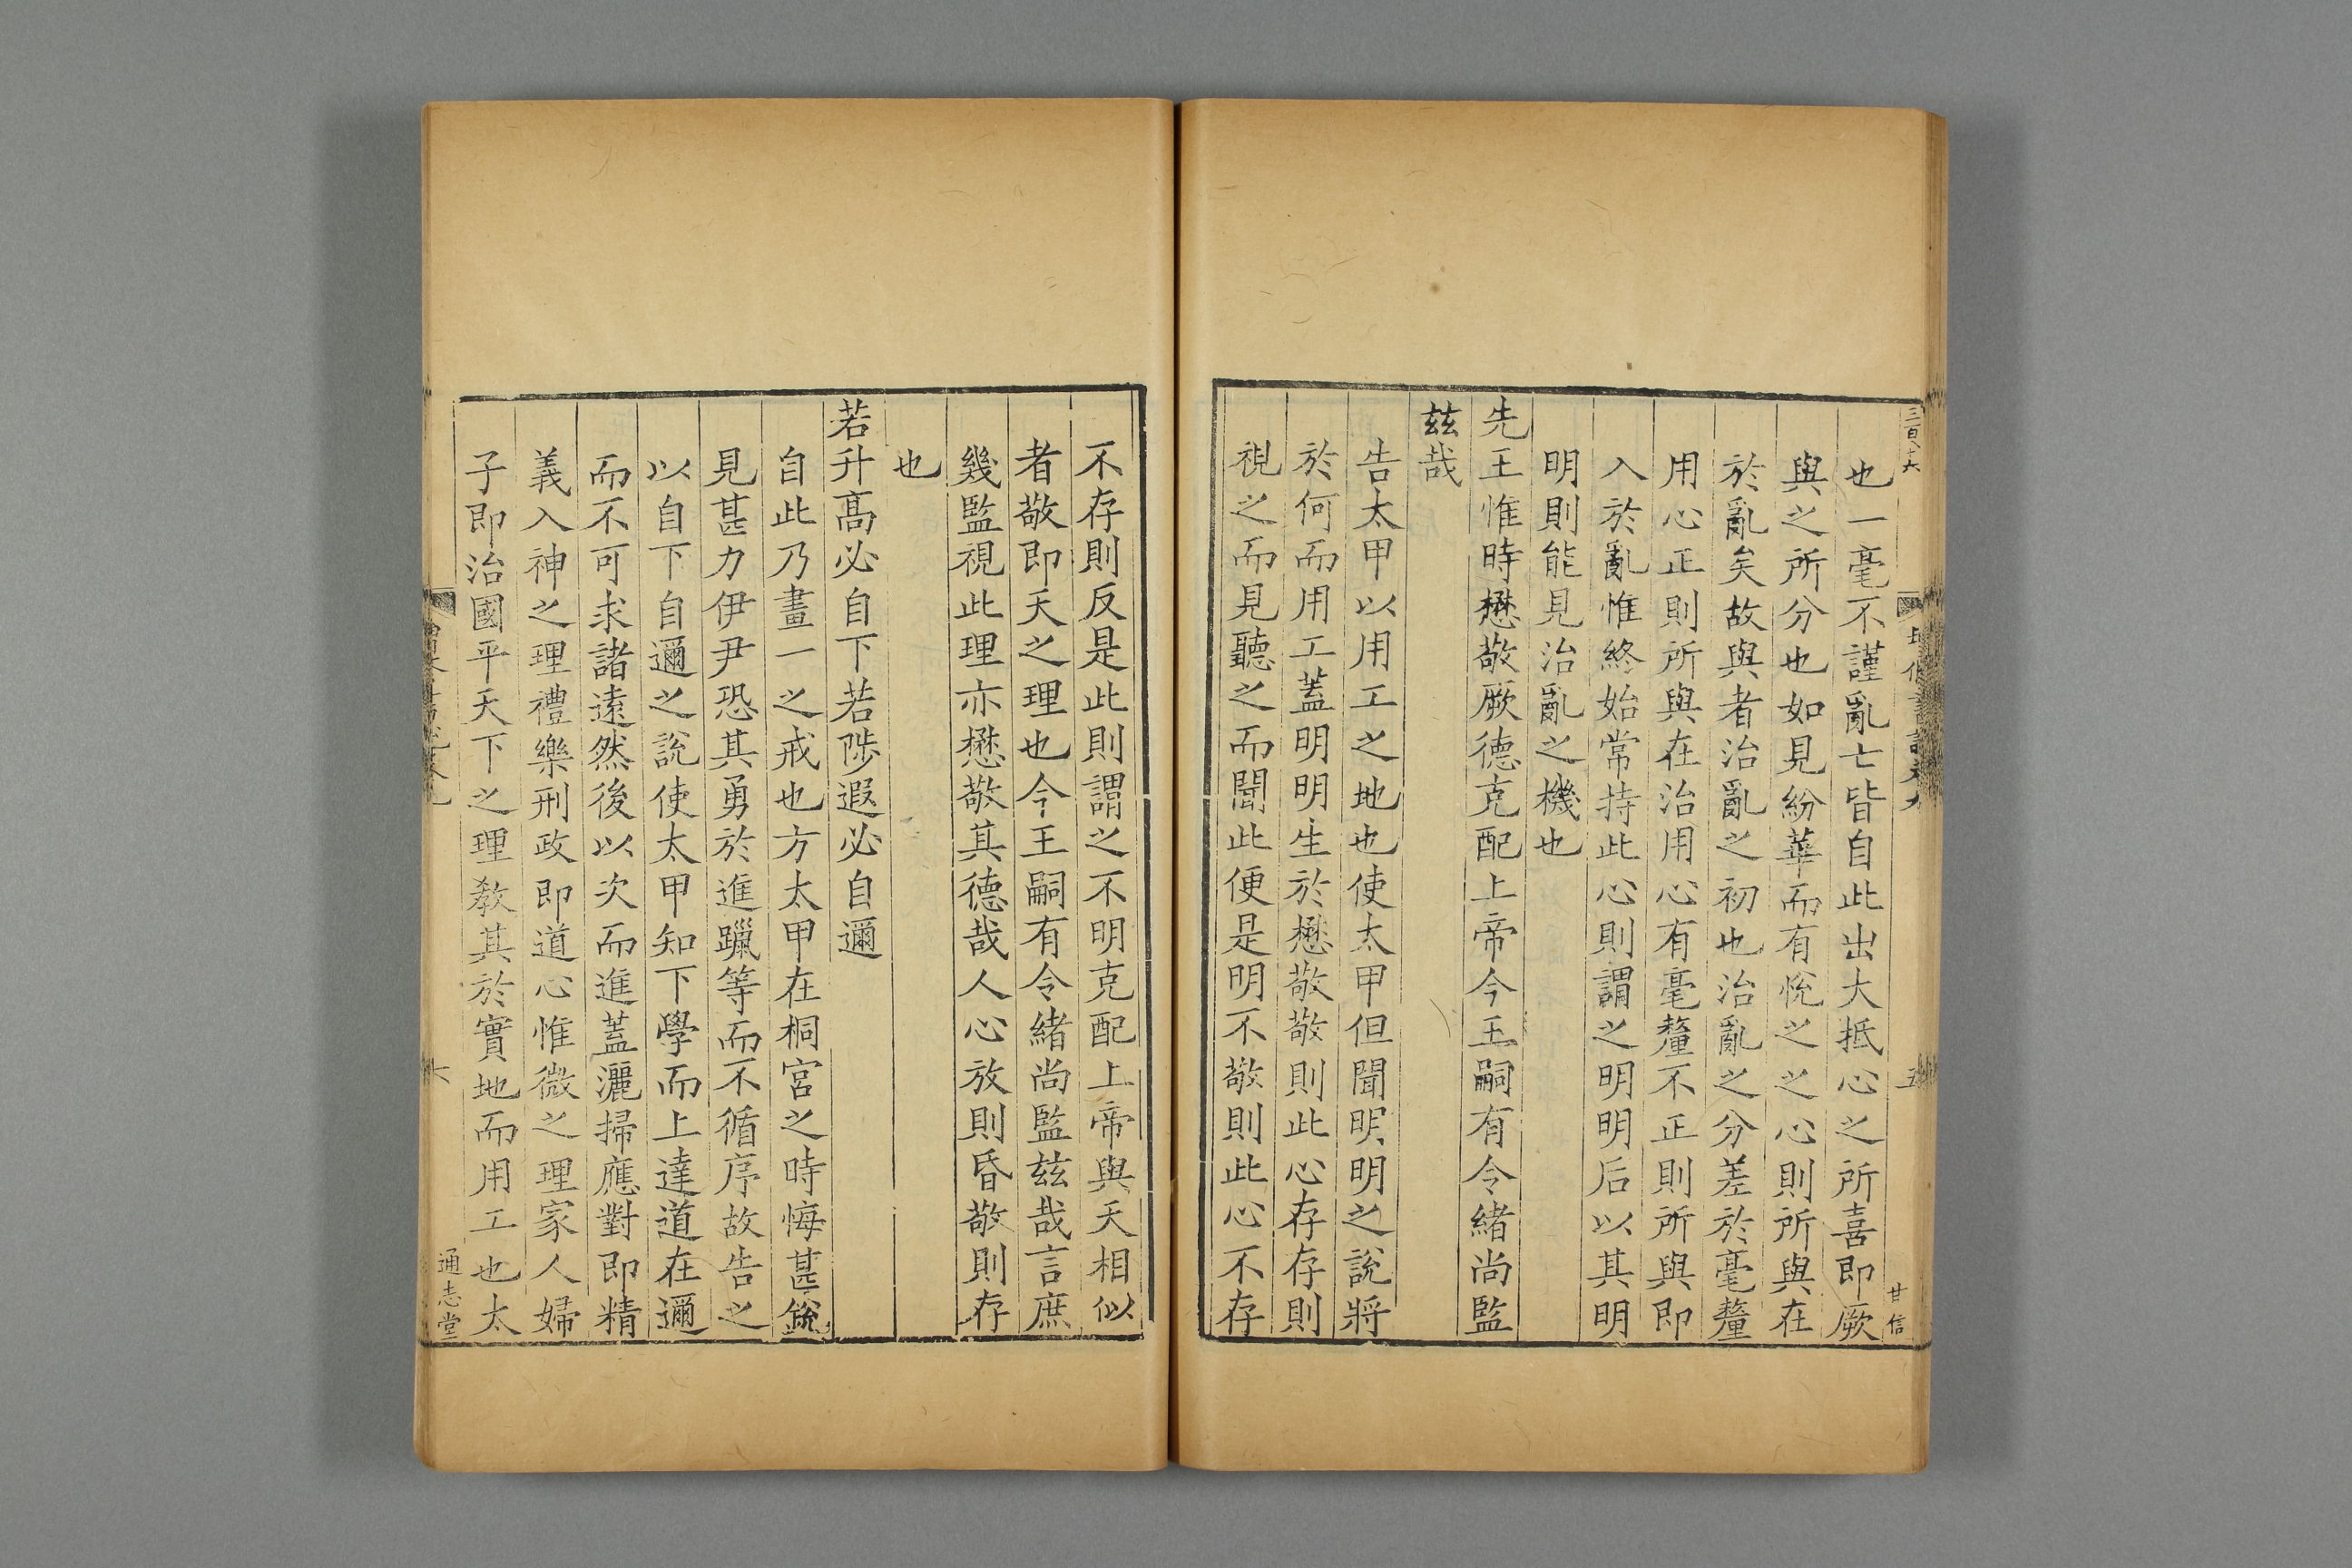 三百八十六
也一毫不謹亂亡皆自此出大抵心之所喜即厥
與之所分也如見紛華而有悅之之心則所與在
於亂矣故與者治亂之初也治亂之分差於毫釐
用心正則所與在治用心有毫釐不正則所與即
入於亂惟終始常持此心則謂之明明后以其明
明則能見治亂之機也
先王惟時懋敬厥德克配上帝今王嗣有令緒尚監
茲哉
告太甲以用工之地也使太甲但聞明明之說將
於何而用工蓋明明生於懋敬敬則此心存存則
視之而見聽之而聞此便是明不敬則此心不存
甘信
不存則反是此則謂之不明克配上帝與天相似
者敬即天之理也今王嗣有令緒尚監茲哉言庶
幾監視此理亦懋敬其德哉人心放則昏敬則存
也
若升高必自下若陟遐必自邇
自此乃畫一之戒也方太甲在桐宮之時悔甚銳
見甚力伊尹恐其勇於進躐等而不循序故告之
以自下自邇之說使太甲知下學而上達道在邇
而不可求諸遠然後以次而進蓋灑掃應對即精
義入神之理禮樂刑政即道心惟微之理家人婦
子即治國平天下之理教其於實地而用工也太
通志堂